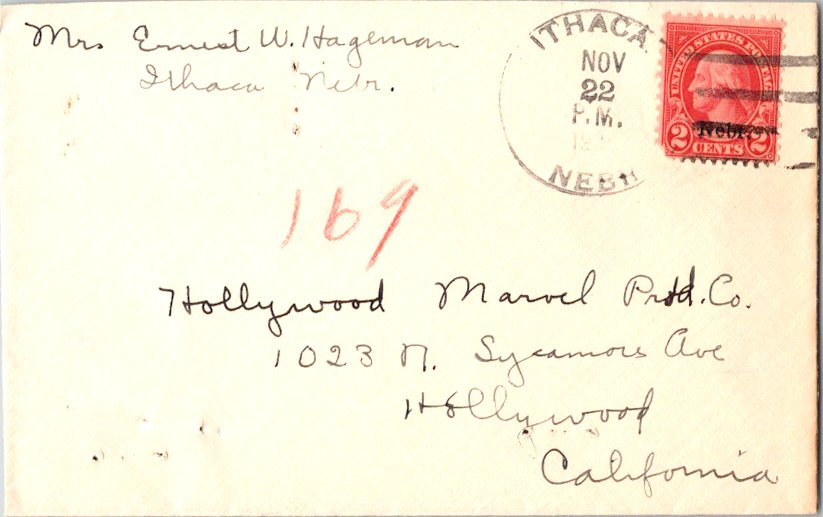 Mrs Ernest W. Hageman
Ithaca Nebr.
ITHACA
NOV
22
P.M.
NEBR
UNITED STATES POSTAGE
Nebr.
2 CENTS 2
169
Hollywood Marvel Prod. Co.
1023 N. Sycamore Ave
Hollywood
California